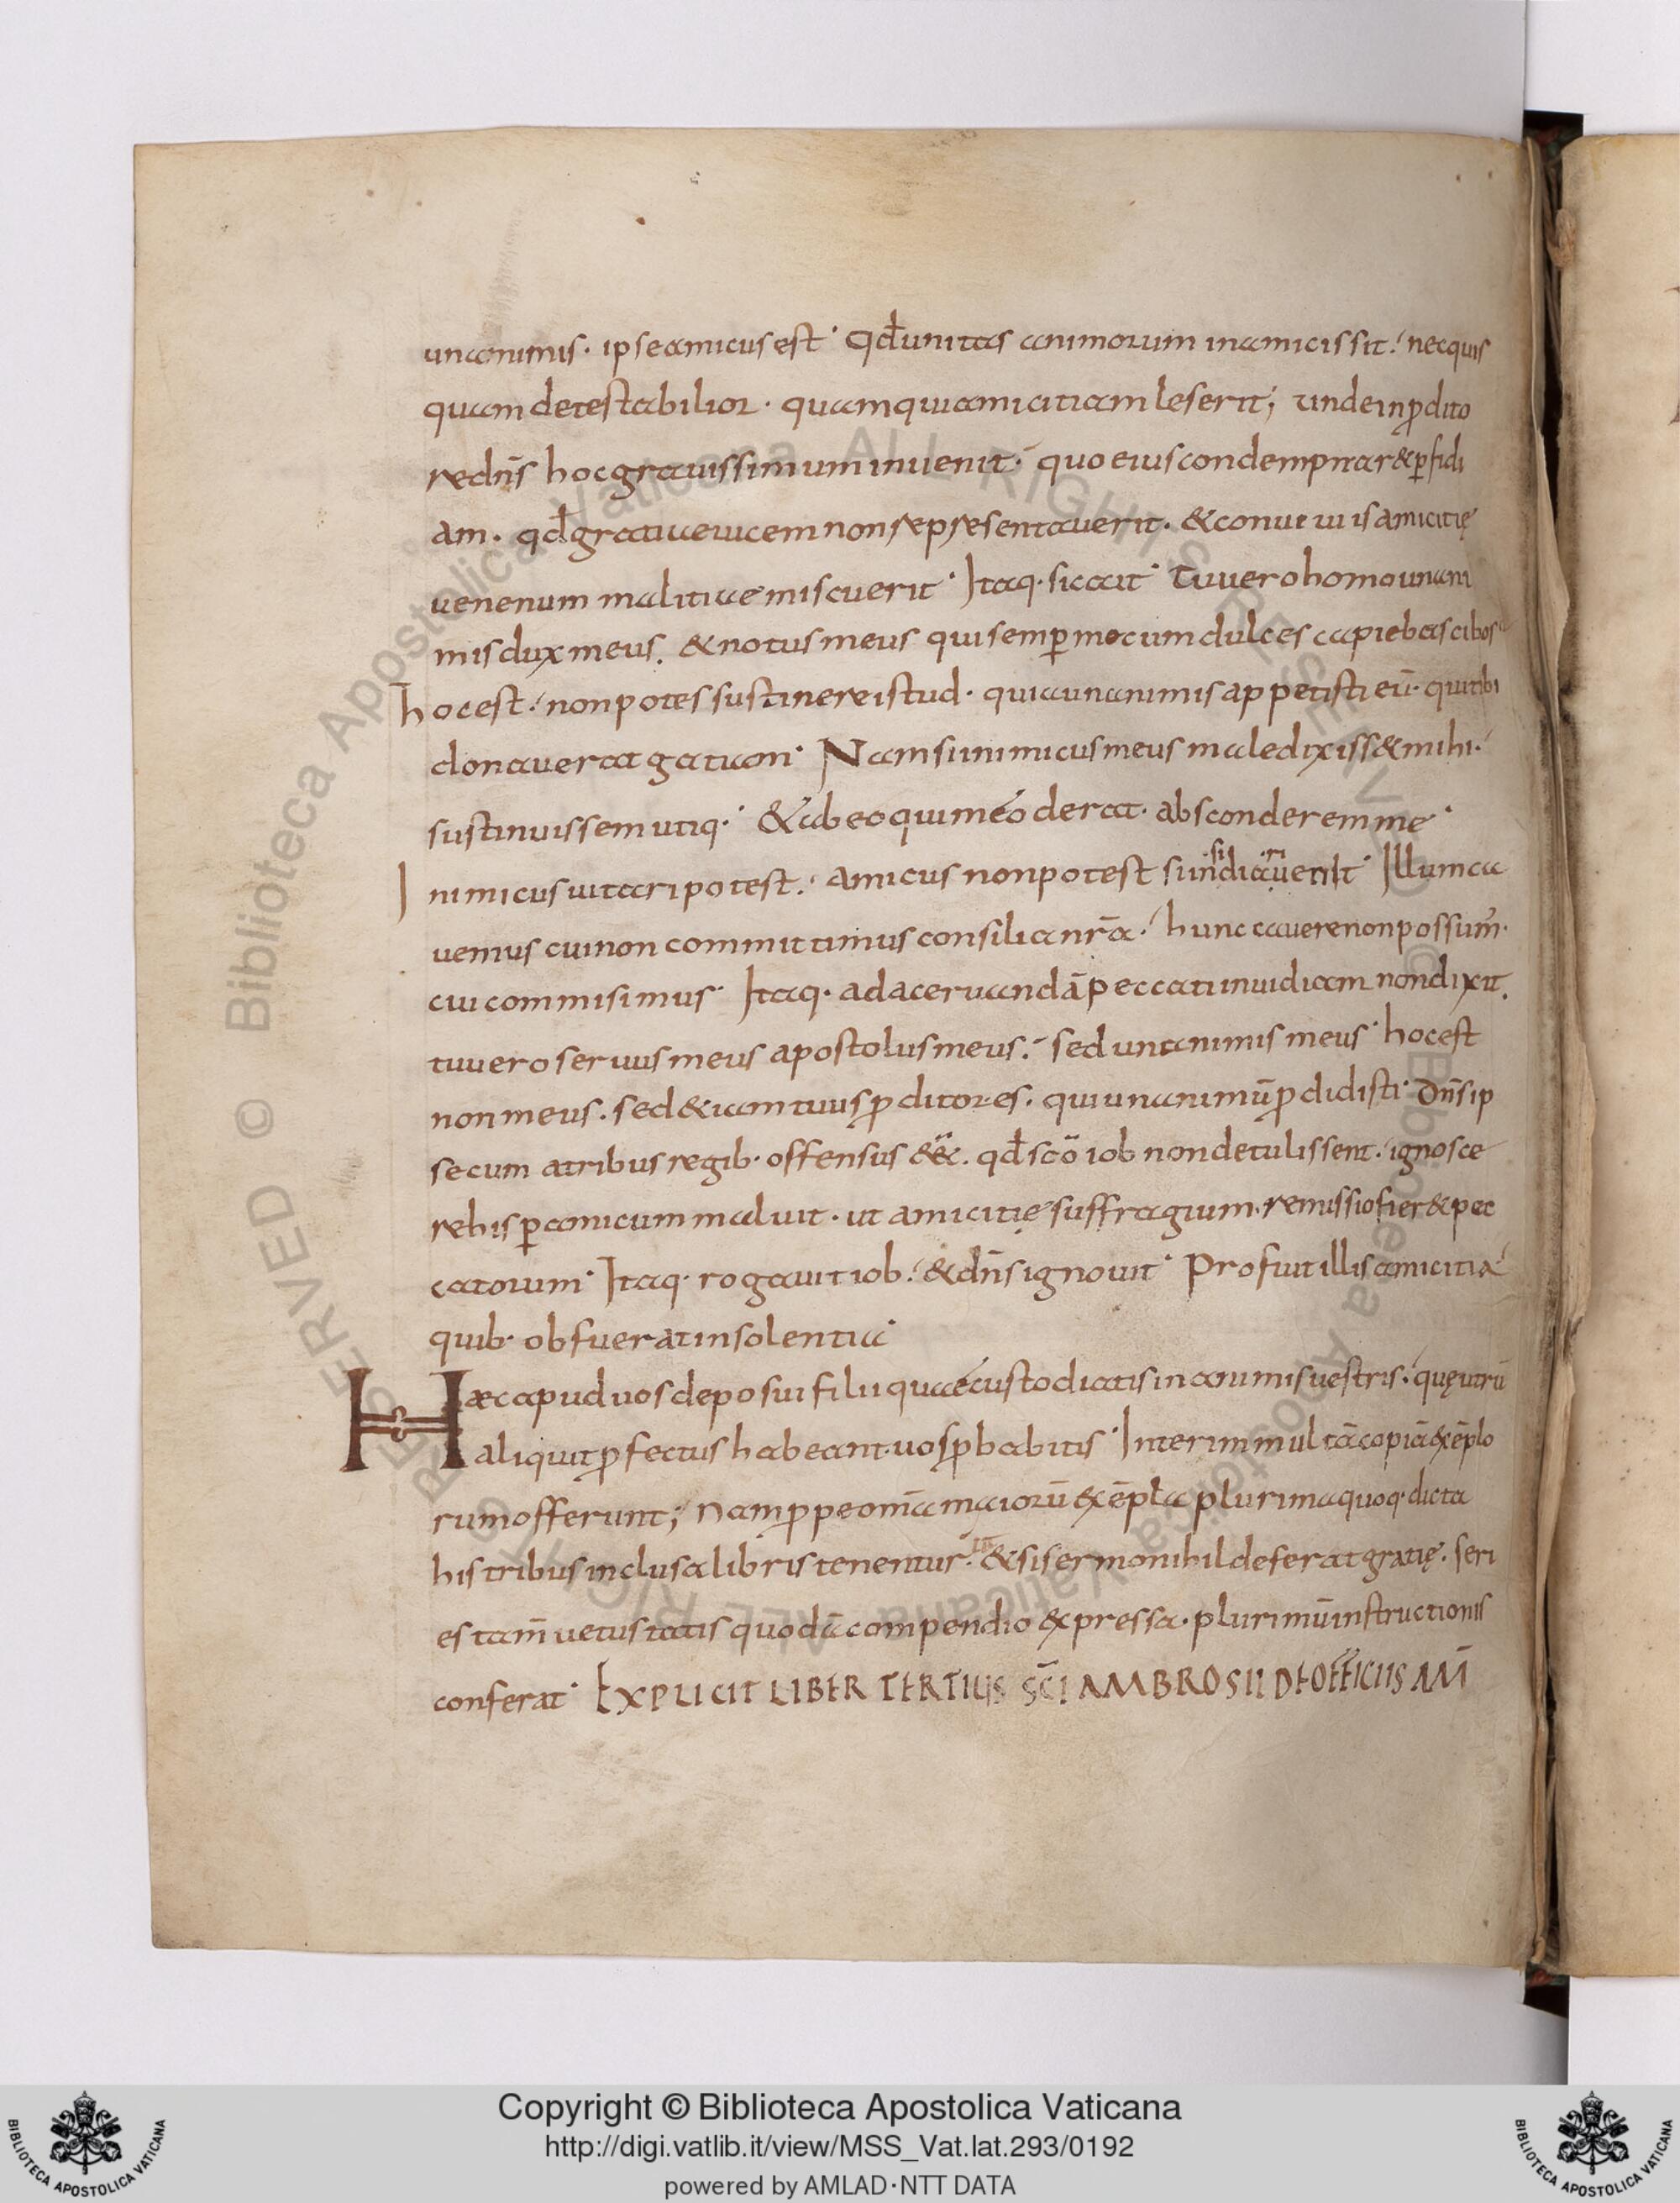 unanimis· ipse amicus est· Qđ unitas animorum in amicis sit· nec quis
quam detestabilior· quam qui amicitiam leserit; unde in ꝓdito
re dn̄s hoc grauissimum inuenit· quo eius condempnar& ꝑfidi
am· qđ gratiae uicem non repręsentauerit· & conuiuiis amicitię
uenenum malitiae miscuerit· Itaq· sic ait· Tu uero homo unani
mis dux meus. & notus meus qui semꝑ mecum dulces capiebas cibos
hoc est· non potes sustinere istud· quia unanimis appetisti eū· qui tibi
donauerat gatiam· Nam si inimicus meus maledixiss& mihi·
sustinuissem utiq·· & ab eo qui me oderat· absconderem me·
Inimicus uitari potest· amicus non potest si insidiari uenit· Illum ca
uemus cui non committimus consilia nr̄a· hunc cauere non possum̄·
cui commisimus· Itaq· ad aceruandā peccati inuidiam non dixit.
tu uero seruus meus apostolus meus· sed unanimis meus· hoc est
non meus· sed & iam tuus ꝓditor es· qui unanimū ꝓdidisti· Dn̄s ip
se cum a tribus regib· offensus ee͞c. qđ sc̄o iob non detulissent· ignosce
re his ꝑ amicum maluit· ut amicitię suffragium· remissio fier& pec
catorum· Itaq· rogauit iob· & dn̄s ignouit· Profuit illis amicitia
quib· obfuerat insolentia·
Haec apud uos deposui filii quae custodiatis in animis uestris· quę utrū
aliquit ꝓfectus habeant· uos ꝓbabitis· Interim multā copiā exēplo
rum offerunt; Nam ꝓpe om̄a maiorū exēpla plurima quoq· dicta
his tribus inclusa libris tenentur· ut & si sermo nihil deferat gratię· seri
es tam̄ uetustatis quodā compendio expressa· plurimū instructionis
conferat· EXPLICIT LIBER TERTIUS SC̄I AMBROSII DE OFFICIIS AM̄
Copyright © Biblioteca Apostolica Vaticana
http://digi.vatlib.it/view/MSS_Vat.lat.293/0192
powered by AMLAD·NTT DATA
BIBLIOTECA APOSTOLICA VATICANA
BIBLIOTECA APOSTOLICA VATICANA